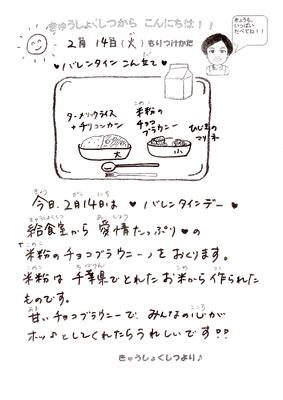 きゅうしょくしつから こんにちは!!
きょうも、
いっぱい
たべてね!!
2月 14日(火) もりつけかた
♥ バレンタインこんだて ♥
ターメリックライス
+チリコンカン
こめこ
米粉の
チョコ
ブラウニー
ひじきの
マリネ
大
小
きょう がつ にち
今日、2月14日は ♥ バレンタインデー ♥
きゅうしょくしつ あいじょう
給食室から 愛情たっぷり♥の
こめこ
「米粉のチョコブラウニー」を おくります。
こめこ ちばけん こめ つく
米粉は 千葉県でとれた お米から作られた
ものです。
あま こころ
甘いチョコブラウニーで、みんなの心が
ホッ♪としてくれたらうれしいです??
きゅうしょくしつより♪